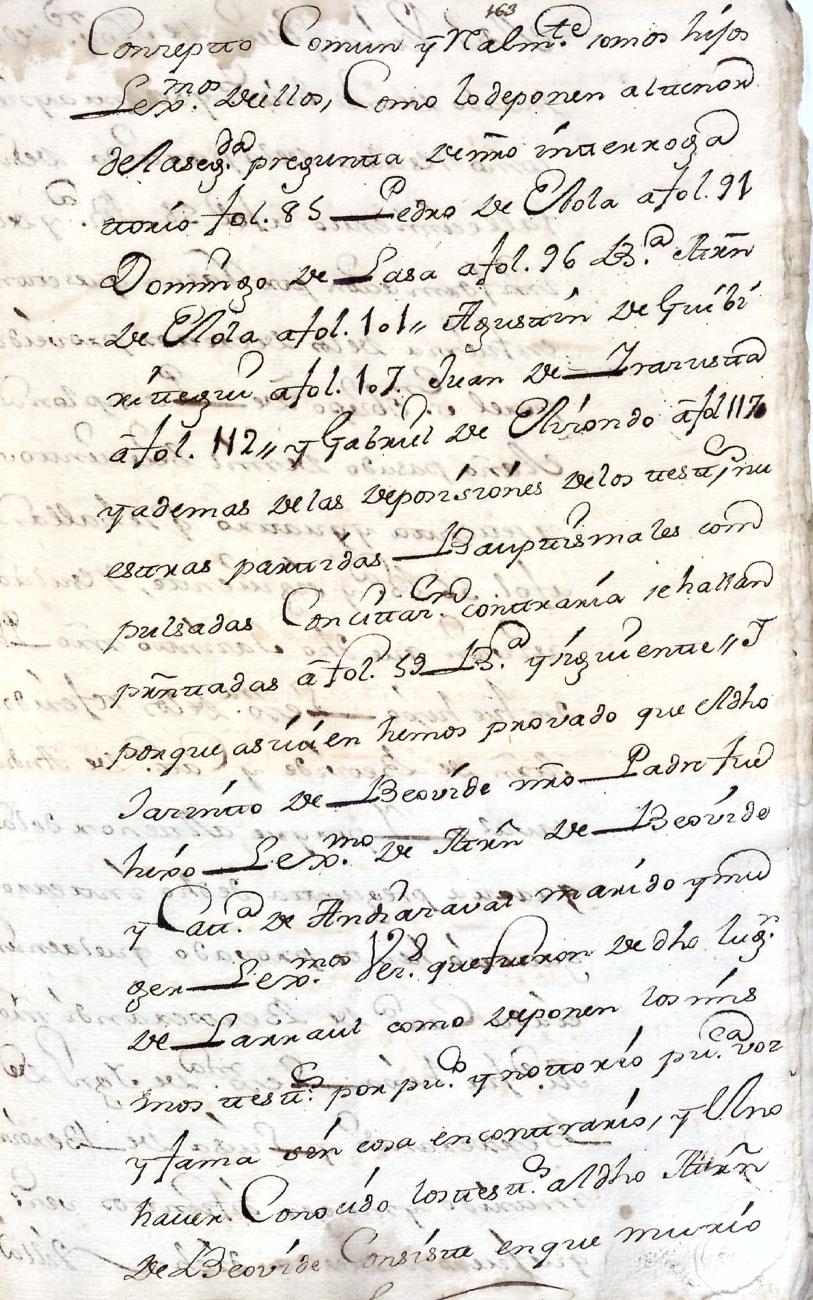 163
Conzepto Comun y Nalmte somos hijos
Lexmos de ellos, Como lo deponen al tenor
de la segda pregunta de nro interroga
torio fol. 85 Pedro de Elola a fol. 91
Domingo de Lasa a fol. 96 Ba Mrn
de Elola a fol. 101,, Agustin de Guibi
ritegui a fol. 107. Juan de Irazusta
a fol. 112,, y Gabriel de Elizondo a fol 117
y ademas de las deposisiones de los testigos, nu
estras partidas Bauptismales com
pulsadas Con cittaron contraria se hallan
prntadas a fol. 59 Ba y siguiente,, I
porque asi vien hemos provado que el dho
Jazinto de Beovide nro Padre fue
hixo Lexmo de Mrn de Beovide
y Cata de Andiazaval marido y mu
ger Lexmos Vezs que fueron de dho lugr
de Larraul como deponen los mis
mos testigos por puco y nottorio puca voz
y fama sin cosa en contrario, y el no
haver Conocido los testigos al dho Mrn
de Beovide Consiste en que murio